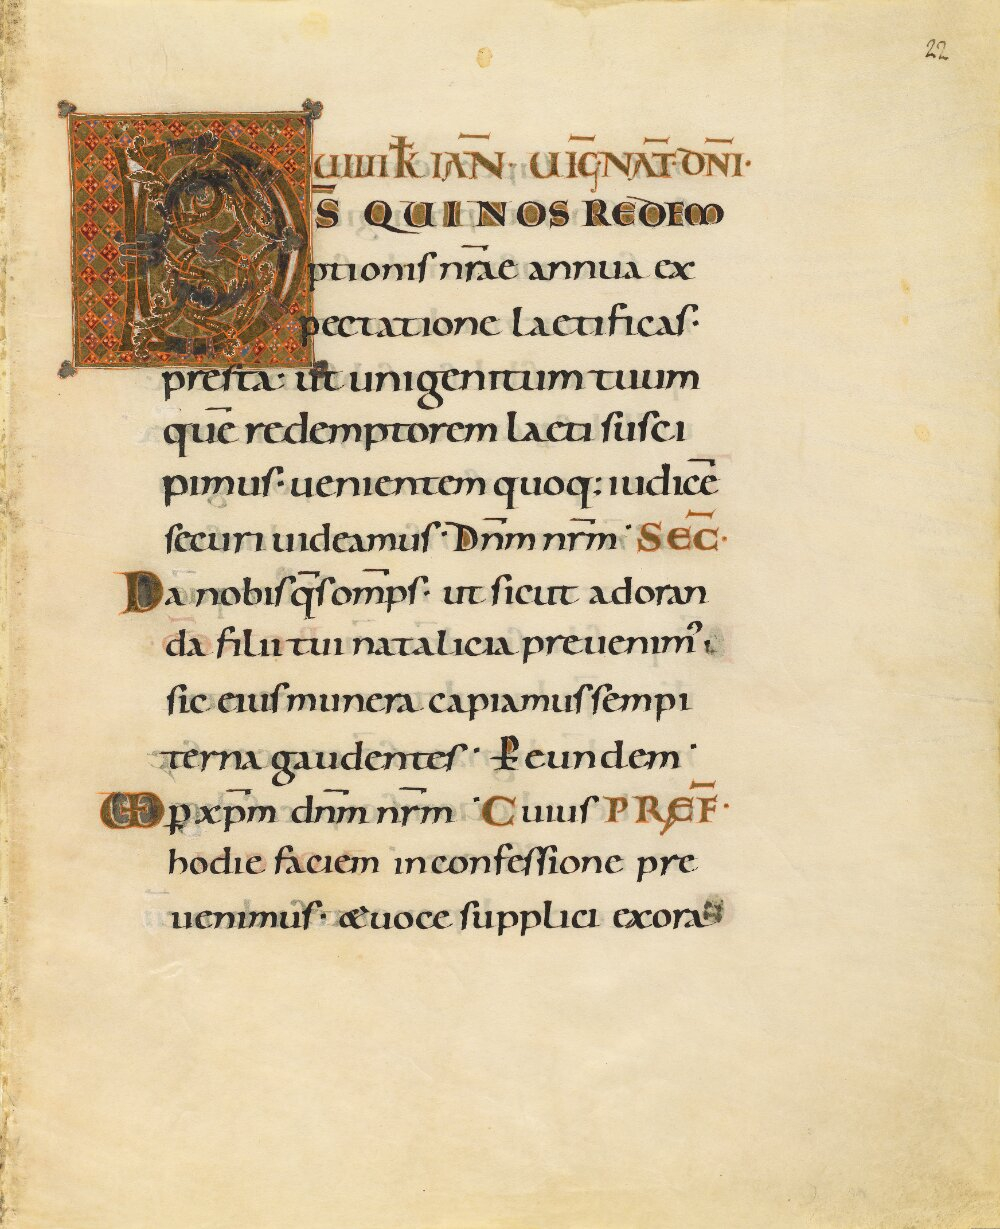 22
VIIII k̄ IAN̄· UIḠ·NAT̄·DN̄I·
DS̄ QUI NOS REDEM
ptionis nr̄ae annua ex
pectatione laetificas·
presta· ut unigenitum tuum
quē redemptorem laeti susci
pimus· uenientem quoq; iudicē
securi uideamus· Dn̄m nr̄m· SEC̄·
Da nobis q̄s om̄ps· ut sicut adoran
da filii tui natalicia preuenim᾽·
sic eius munera capiamus sempi
terna gaudentes· Ꝑ eundem·
ꝑ xp̄m dn̄m nr̄m· Cuius PREF̄·
hodie faciem in confessione pre
uenimus· & uoce supplici exora